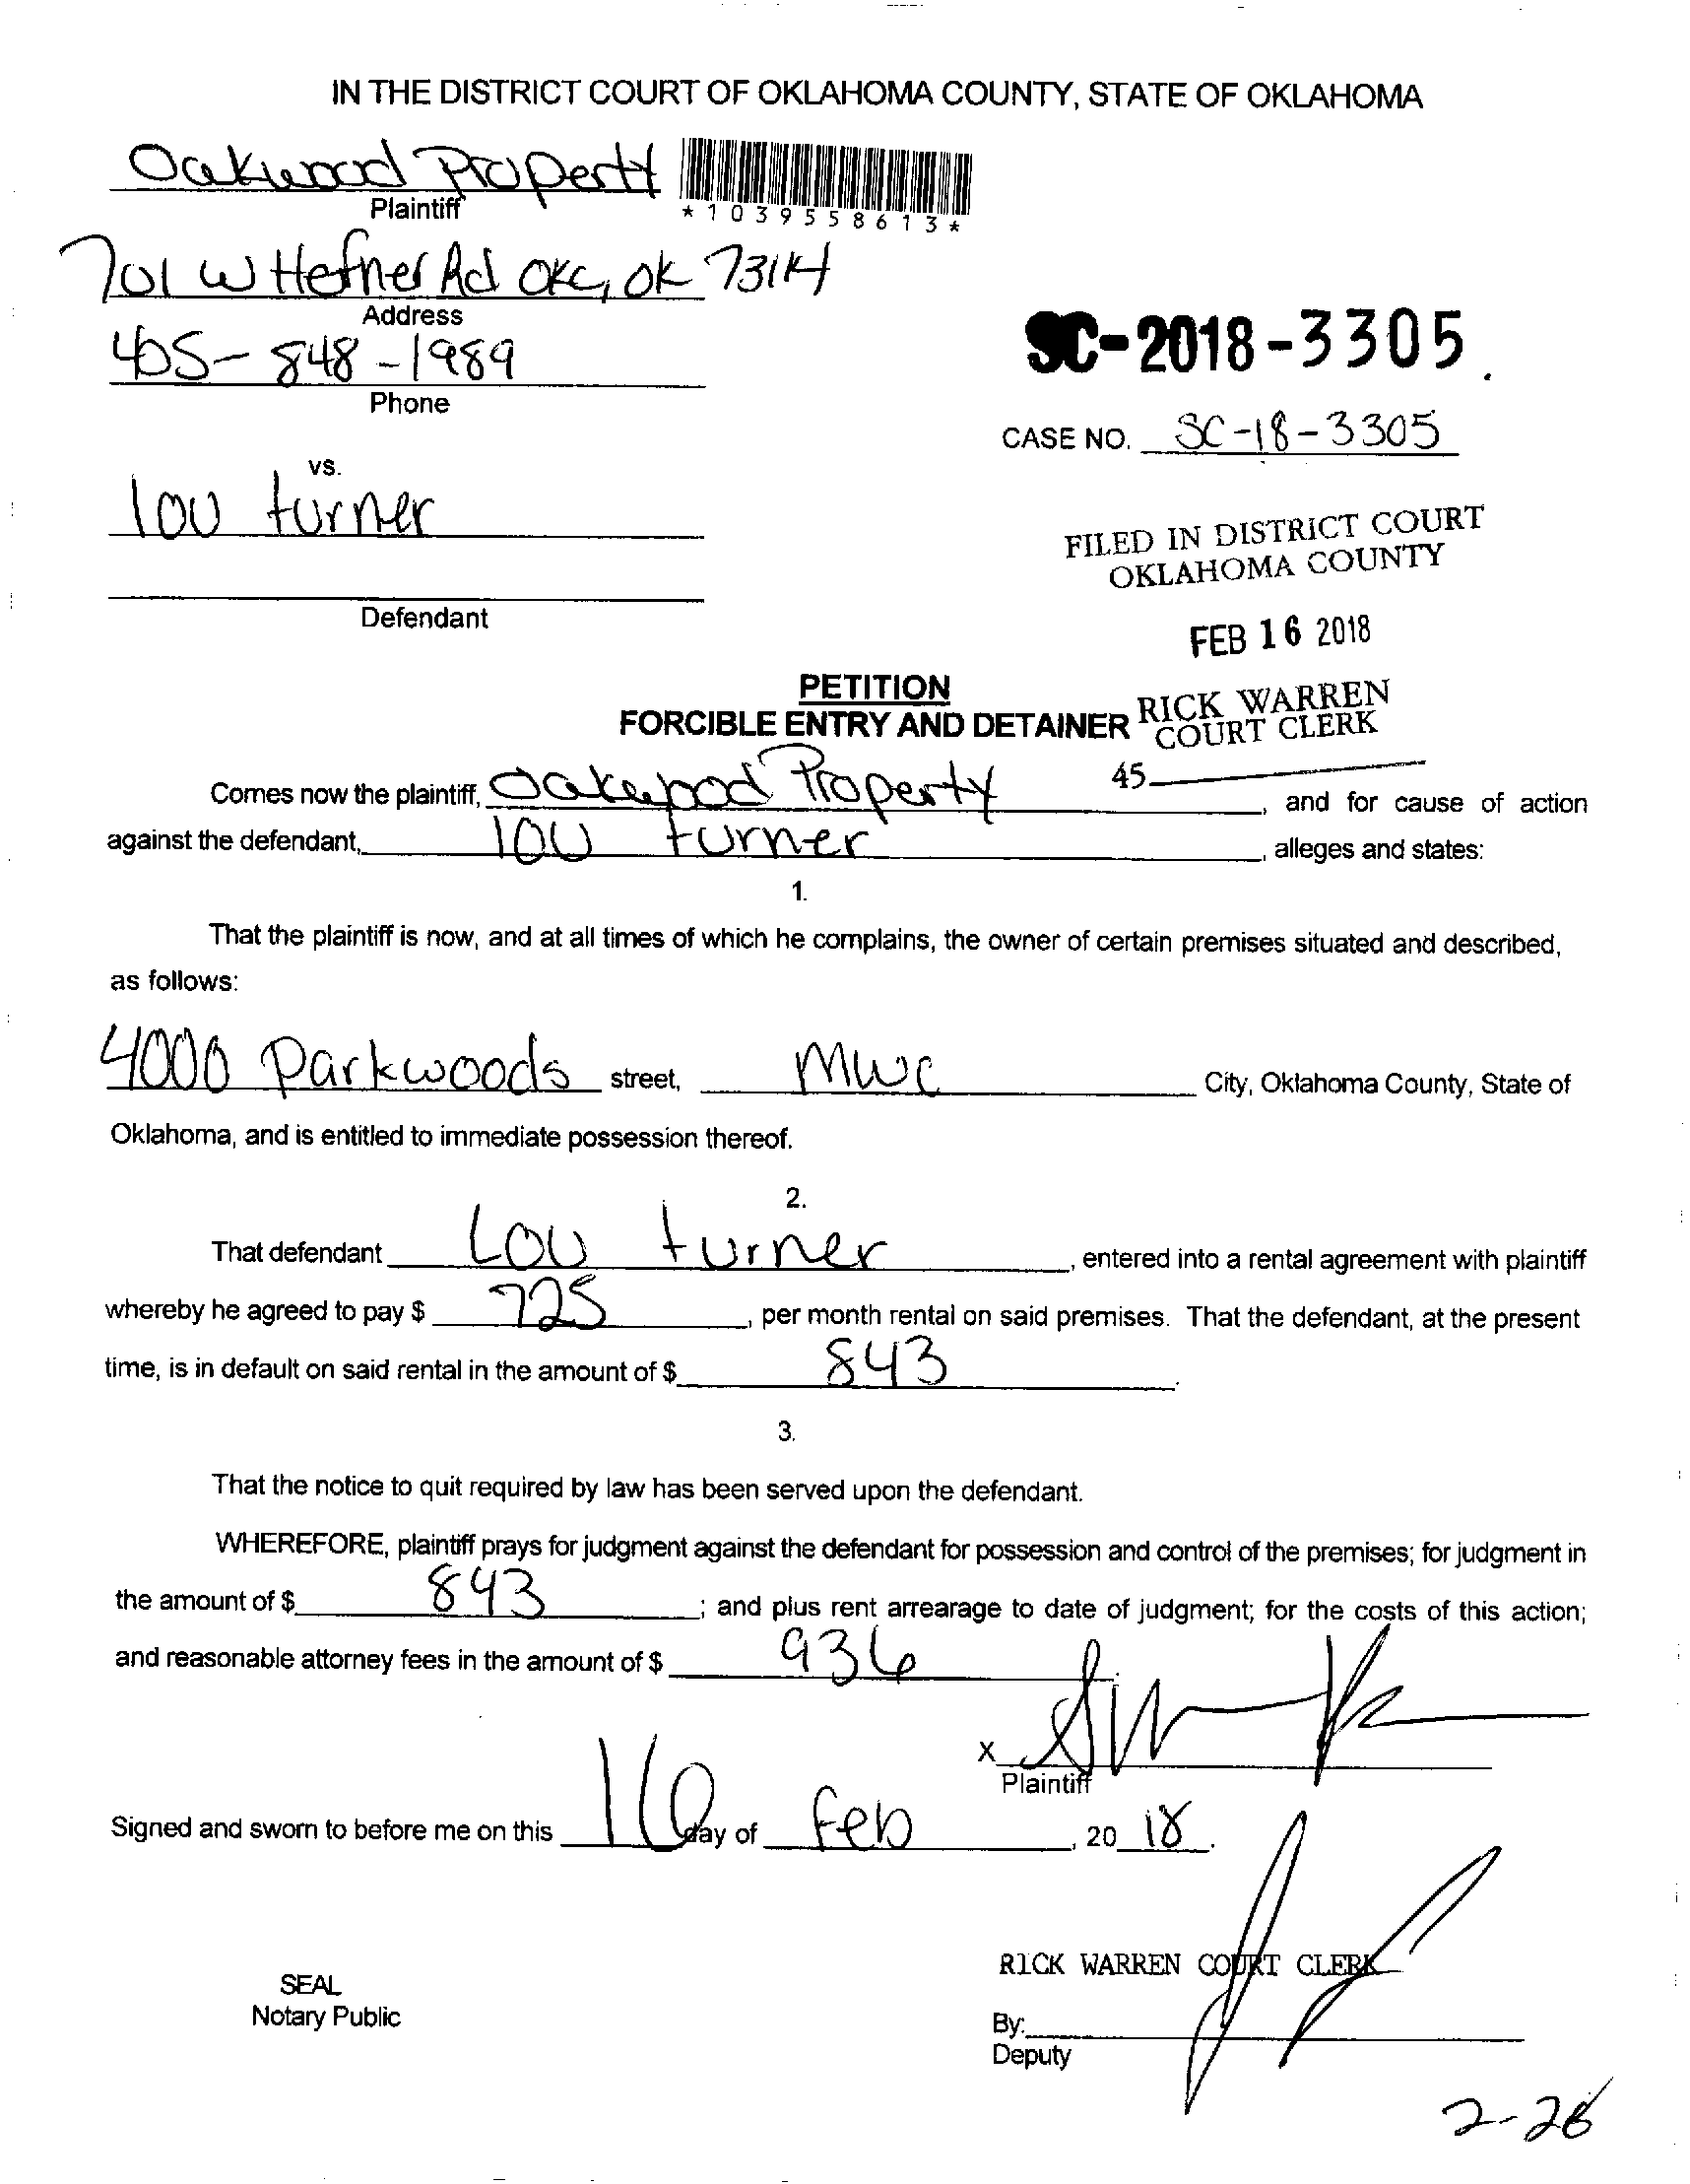 IN THE DISTRICT COURT OF OKLAHOMA COUNTY, STATE OF OKLAHOMA
Oakwood Property
Plaintiff
*1039558613*
701 W Hefner Rd OKC, OK 73114
Address
405-848-1989
Phone
SC-2018-3305
CASE NO. SC-18-3305
vs.
lou turner
Defendant
FILED IN DISTRICT COURT
OKLAHOMA COUNTY
FEB 16 2018
RICK WARREN
COURT CLERK
45
PETITION
FORCIBLE ENTRY AND DETAINER
Comes now the plaintiff, Oakwood Property, and for cause of action
against the defendant, lou turner, alleges and states:
1.
That the plaintiff is now, and at all times of which he complains, the owner of certain premises situated and described,
as follows:
4000 Parkwoods street, MWC City, Oklahoma County, State of
Oklahoma, and is entitled to immediate possession thereof.
2.
That defendant Lou turner, entered into a rental agreement with plaintiff
whereby he agreed to pay $ 725, per month rental on said premises. That the defendant, at the present
time, is in default on said rental in the amount of $ 843.
3.
That the notice to quit required by law has been served upon the defendant.
WHEREFORE, plaintiff prays for judgment against the defendant for possession and control of the premises; for judgment in
the amount of $ 843; and plus rent arrearage to date of judgment; for the costs of this action;
and reasonable attorney fees in the amount of $ 936
X
Plaintiff
Signed and sworn to before me on this 16 day of Feb, 20 18.
RICK WARREN COURT CLERK
SEAL
Notary Public
By:
Deputy
2-26